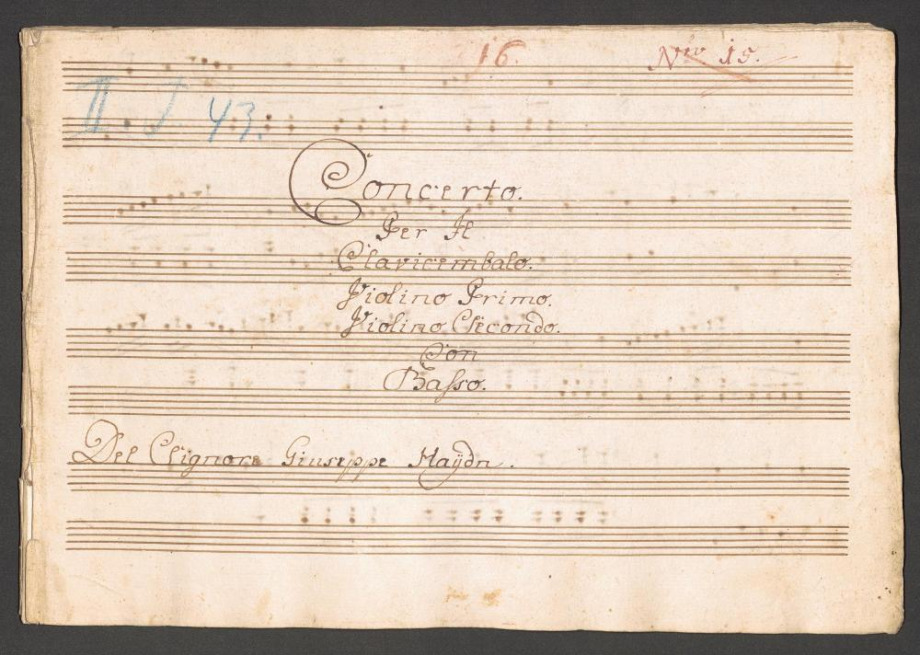 16. Nro 15.
II. J 43.
Concerto.
Per Il
Clavicembalo.
Violino Primo.
Violino Secondo.
Con
Basso.
Del Signore Giuseppe Haÿdn.